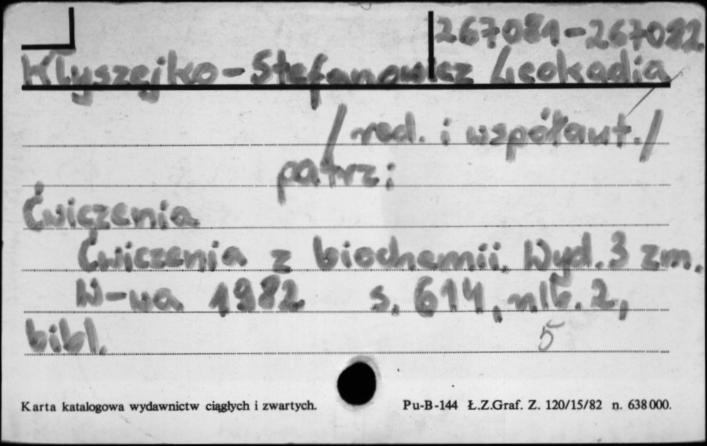 267081-267082
Kłyszejko-Stefanowicz Leokadia
/red. i współaut./
patrz:
Ćwiczenia
Ćwiczenia z biochemii. Wyd. 3 zm.
W-wa 1982 s. 614, nlb. 2,
bibl. 5
Karta katalogowa wydawnictw ciągłych i zwartych. Pu-B-144 Ł.Z.Graf. Z. 120/15/82 n. 638000.